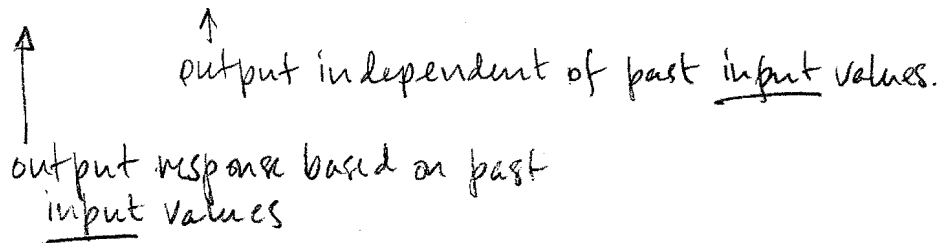 output independent of past input values.
output response based on past
input values